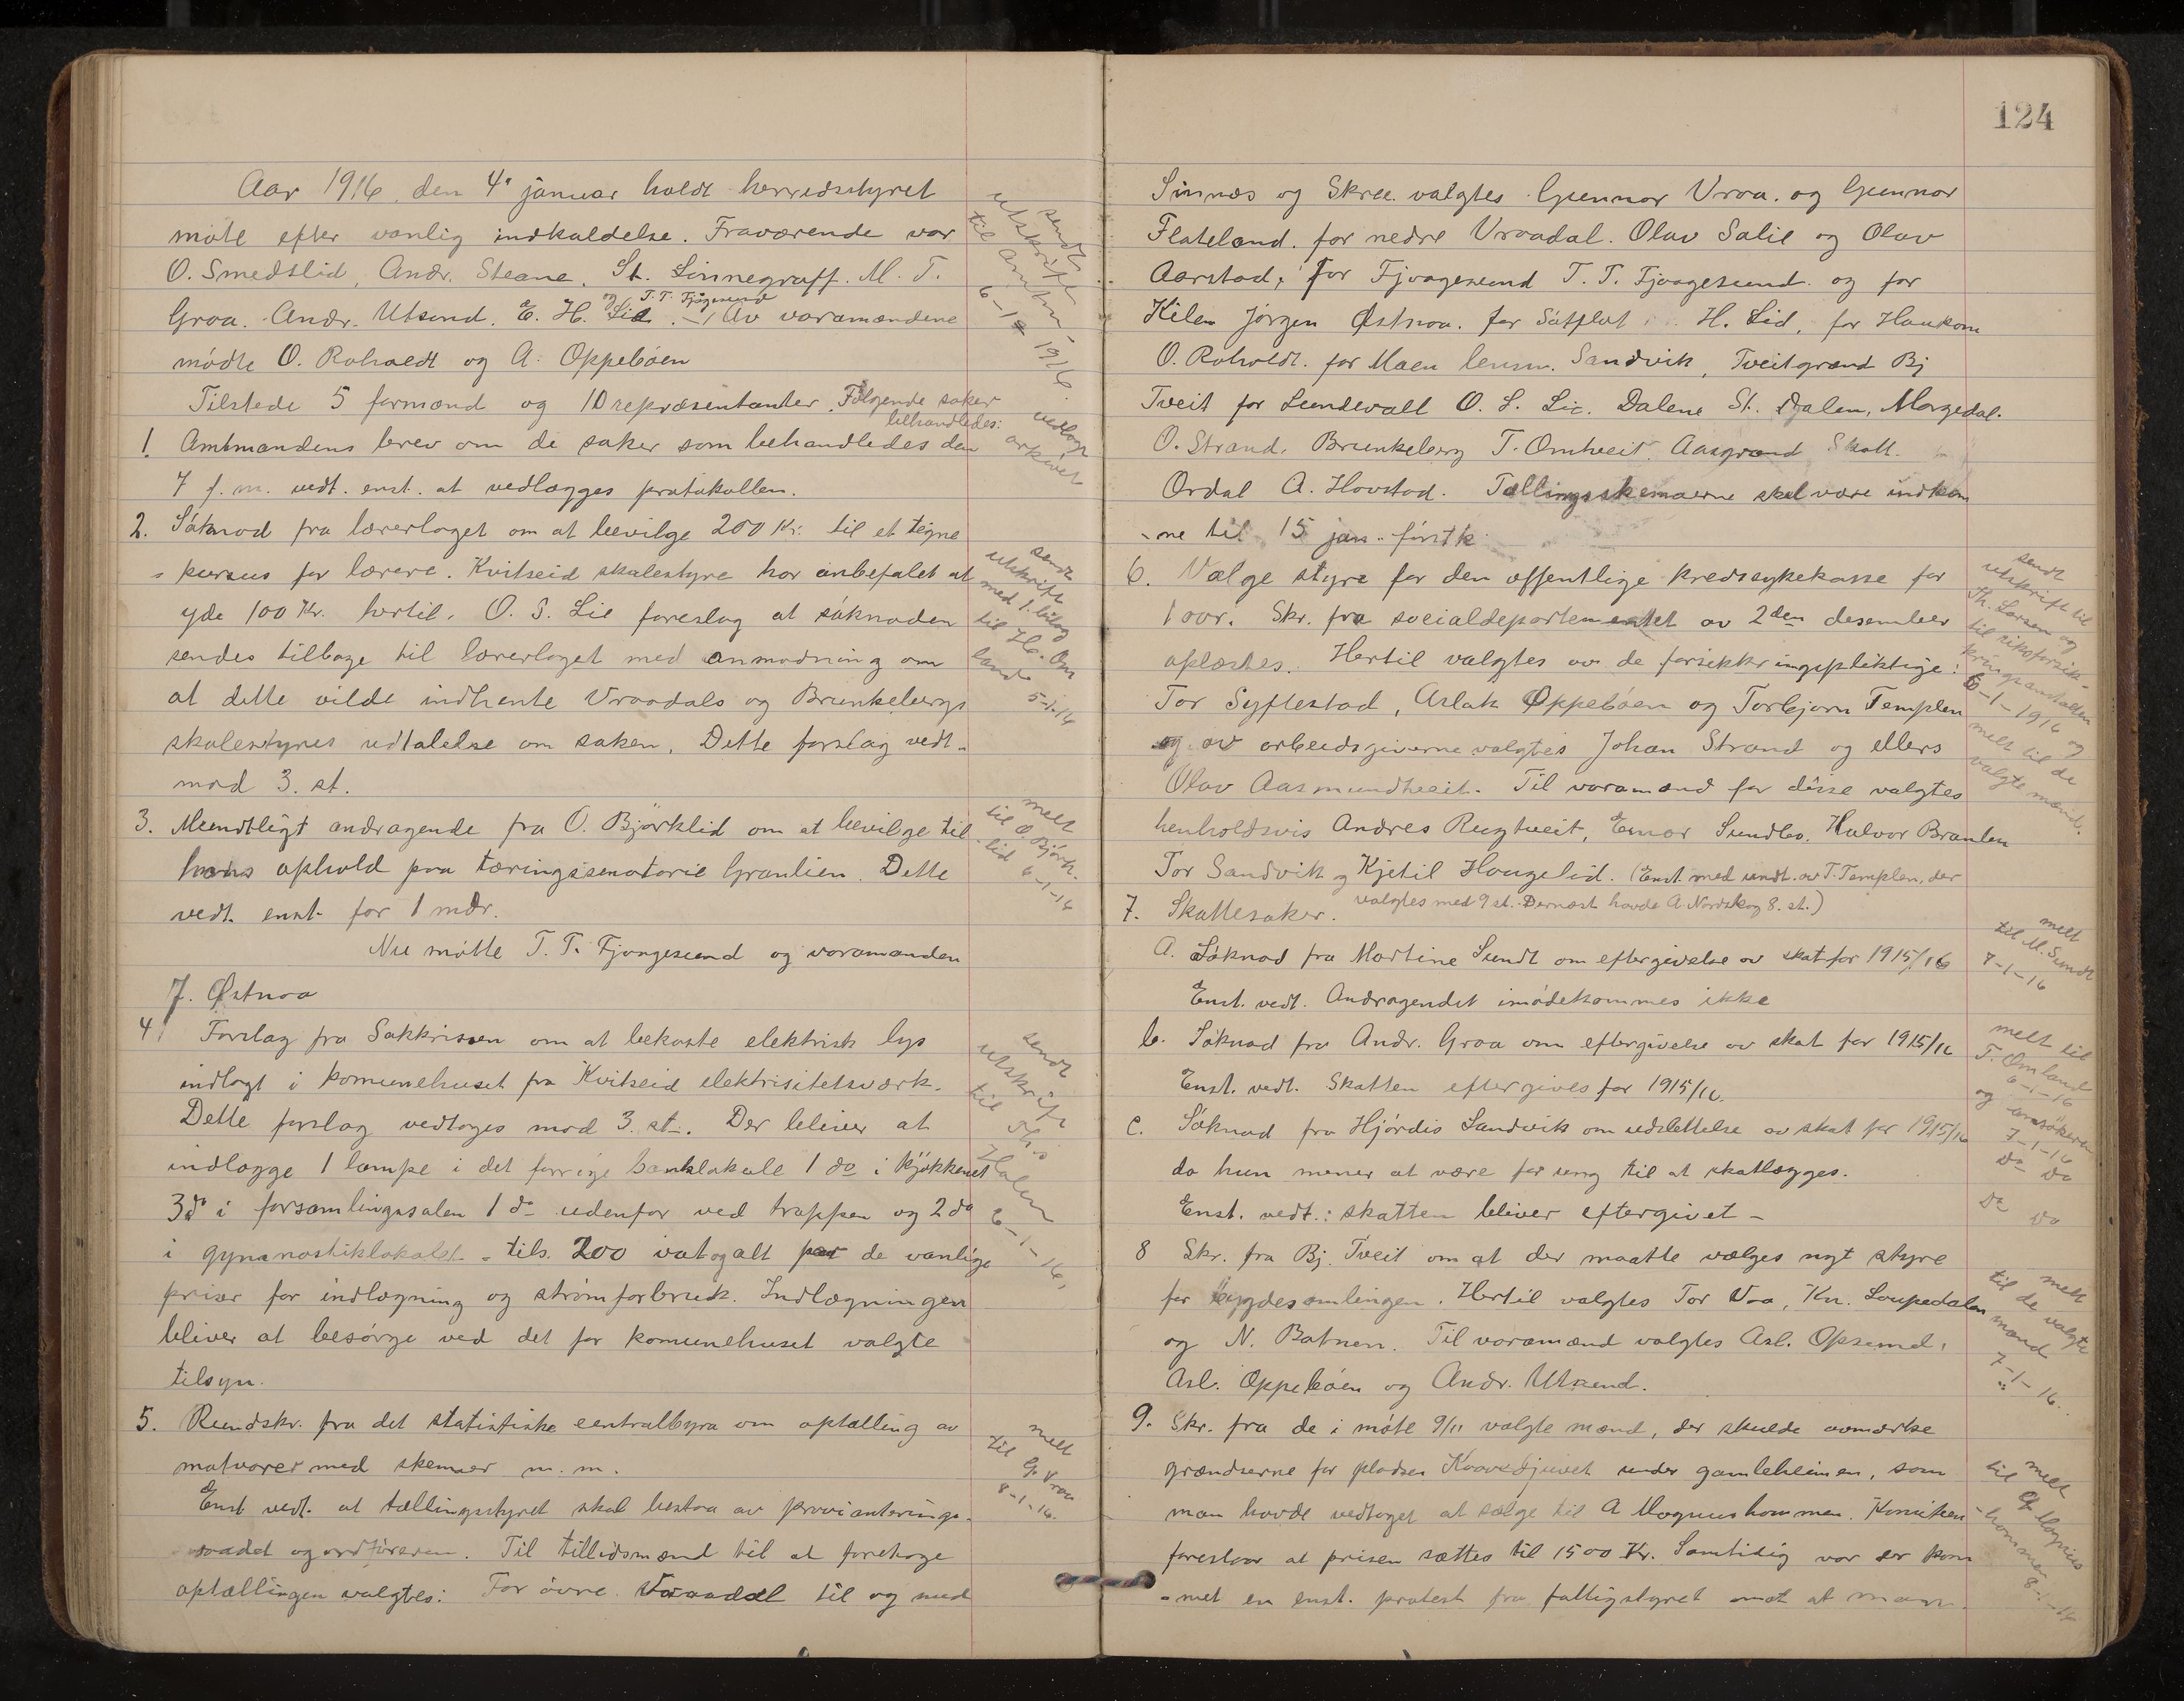 Aar 1916 den 4' januar holdt herredsstyret
møte efter vanlig indkaldelse. Fraværende var
O. Smedslid, Andr. Steane, St. Sinnegraff. M. T.
og T. T. Fjågesund
Groa. Andr. Utsund. E. H. Lid. Av varamændene
mødte O. Roholdt og A. Oppebøen
Tilstede 5 formænd og 10 repræsentanter. Følgende saker
behandledes:
1. Amtmandens brev om de saker som behandledes den
7 f. m. vedt. enst. at vedlægges protokollen.
2. Søknad fra lærerlaget om at bevilge 200 Kr. til et tegne
kursus for lærere. Kviteseid skolestyre har anbefalet at
yde 100 Kr. hertil. O. S. Lie foreslog at søknaden
sendes tilbage til lærerlaget med anmodning om
at dette vilde indhente Vraadals og Brunkebergs
skolestyres udtalelse om saken. Dette forslag vedt.
mod 3. st.
3. Mundtligt andragende fra O. Bjørklid om at bevilge til
hans ophold paa tæringssenatorie Granlien. Dette
vedt. enst. for 1 mdr.
Nu møtte T. T. Fjaagesund og varamanden
J. Østnoa
4. Forslag fra Sakkrissen om at bekoste elektrisk lys
indlagt i komunehuset fra Kviteseid elektrisitetsværk.
Dette forslag vedtoges mod 3. st. Der bliver at
indlægge 1 lampe i det forrige banklokale 1 do i kjøkkenet
3 do i forsamlingssalen 1 do udenfor ved trappen og 2 do
i gymnastiklokalet - tils. 200 vat og alt de vanlige
priser for indlægning og strømforbruk. Indlægningen
bliver at besørge ved det for komunehuset valgte
tilsyn.
5. Rundskr. fra det statistiske centralbyra om optælling av
matvarer med skemaer m. m.
Enst vedt. at tællingsstyret skal bestaa av provianterings-
raadet og ordføreren. Til tillidsmænd til at foretage
optællingen valgtes: For øvre Vraadal til og med
sendt
utskrift
til amtm
6-1 1916.
vedlagt
arkivet
sendt
utskrift
med 1. bilag
til H. Om
land 5-1-16
melt
til O. Bjørk-
lid 6-1-16
sendt
utskrift
til Ths
Holen
6-1-16,
melt
til G. Vraa
8-1-16.
124
Sinnæs og Skree. valgtes Gunnar Vraa. og Gunnar
Flateland. for nedre Vraadal. Olav Salie og Olav
Aarstad, for Fjaagesund T. T. Fjaagesund. og for
Kilen Jørgen Østnoa. for Sátflat H. Lid, for Haukom
O. Roholdt. for Moen lensm. Sandvik, Tveitgrænd Bj
Tveit for Lundevall O. S. Lie. Dalene St. Dalen, Morgedal.
O. Strand, Brunkeberg T. Omtveit. Aasgrænd Skott.
Ordal A. Hovstad. Tællingsskemaerne skal være indkom
-ne til 15 jan. først k.
6. Vælge styre for den offentlige kredssykekasse for
1 aar. Skr. fra socialdepartementet av 2den desember
oplæstes. Hertil valgtes av de forsikkringspliktige:
Tor Syftestad, Aslak Oppebøen og Torbjørn Templen
og av arbeidsgiverne valgtes Johan Strand og ellers
Olav Aasmundtveit. Til varamænd for disse valgtes
henholdsvis Andres Rugtveit, Einar Sundbø. Halvor Brauten
Tor Sandvik og Kjetil Haugelid. (Enst. med undt. av T. Templen, der
valgtes med 9 st. Dernæst havde A. Nordskog 8. st.)
7. Skattesaker.
A. Søknad fra Martine Sundt om eftergivelse av skat for 1915/16
Enst. vedt. Andragendet imødekommes ikke
b. Søknad fra Andr. Groa om eftergivelse av skat for 1915/16
Enst. vedt. Skatten eftergives for 1915/16.
c. Søknad fra Hjørdis Sandvik om udslettelse av skat for 1915/16
da hun mener at være for ung til at skatlægges.
Enst. vedt.: skatten bliver eftergivet -
8 Skr. fra Bj. Tveit om at der maatte vælges nyt styre
for bygdesamlingen. Hertil valgtes Tor Vaa, Kn. Loupedalen
og N. Batnen. Til varamænd valgtes Asl. Opsund,
Asl. Oppebøen og Andr. Utsund.
9. Skr. fra de i møte 9/11 valgte mænd, der skulde avmerke
grændserne for pladsen Kaavedjuvet under gamleheimen, som
man havde vedtaget at sælge til A Magnushommen. Komiteen
foreslaar at prisen sættes til 1500 Kr. Samtidig var der kom
-met en enst. protest fra fattigstyret mot at man
sendt
utskrift til
Th. Larsen og
til riksforsik-
kringsanstalten
6-1-1916 og
melt til de
valgte mænd.
melt
til M. Sundt
7-1-16
melt til
T. Omland
6-1-16
og ansøkeren
7-1-16
Do Do
Do Do
melt
til de valgte
mænd
7-1-16.
melt
til A Magnus
-hommen
8-1-16